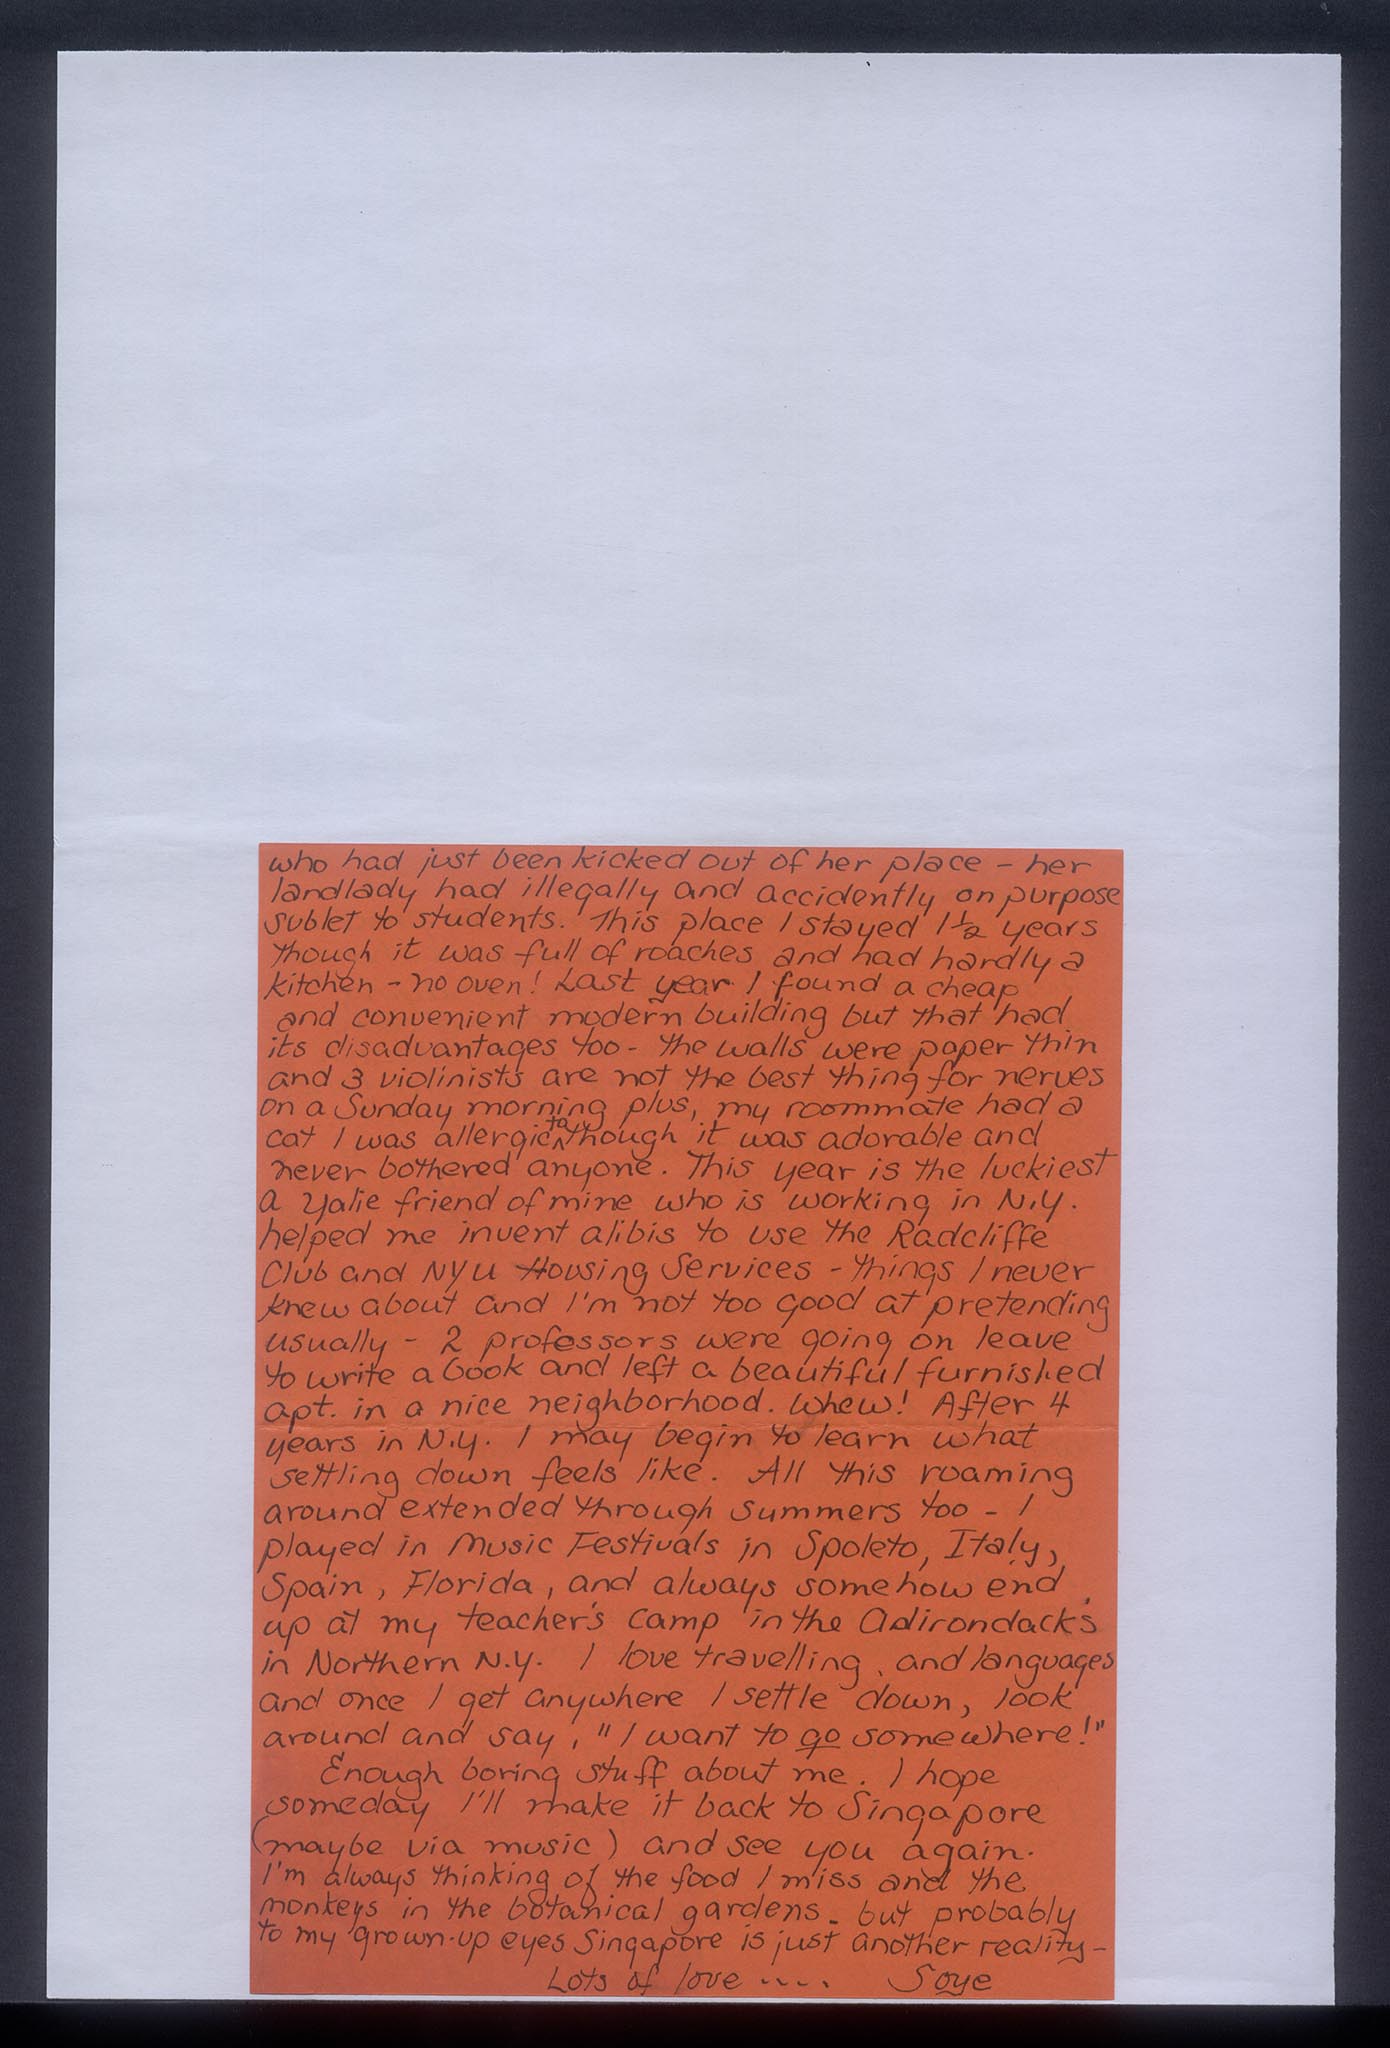 who had just been kicked out of her place - her
landlady had illegally and accidently on purpose
sublet to students. This place I stayed 1½ years
though it was full of roaches and had hardly a
kitchen - no oven! Last year I found a cheap
and convenient modern building but that had
its disadvantages too - the walls were paper thin
and 3 violinists are not the best thing for nerves
on a Sunday morning plus, my roommate had a
cat I was allergic to though it was adorable and
never bothered anyone. This year is the luckiest
a Yalie friend of mine who is working in N.Y.
helped me invent alibis to use the Radcliffe
Club and NYU Housing Services - things I never
knew about and I'm not too good at pretending
usually - 2 professors were going on leave
to write a book and left a beautiful furnished
apt. in a nice neighborhood. Whew! After 4
years in N.Y. I may begin to learn what
settling down feels like. All this roaming
around extended through summers too - I
played in Music Festivals in Spoleto, Italy,
Spain, Florida, and always somehow end
up at my teacher's camp in the Adirondacks
in Northern N.Y. I love travelling, and languages
and once I get anywhere I settle down, look
around and say, "I want to go somewhere!"
Enough boring stuff about me. I hope
someday I'll make it back to Singapore
(maybe via music) and see you again.
I'm always thinking of the food I miss and the
monkeys in the botanical gardens - but probably
to my grown-up eyes Singapore is just another reality -
Lots of love .... Soye